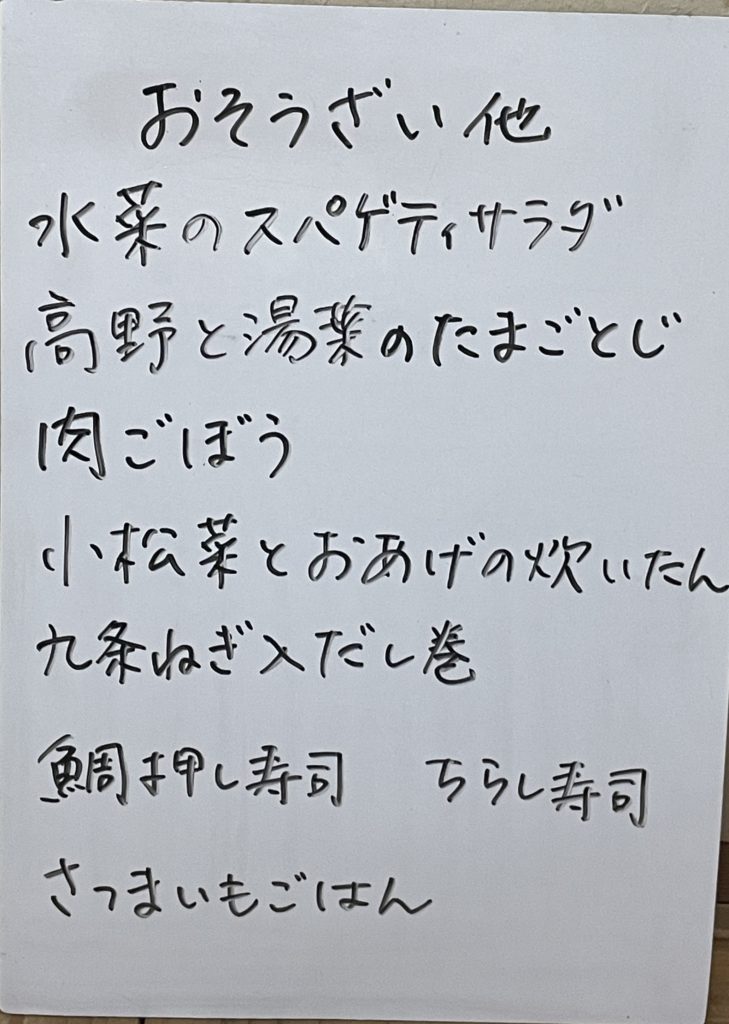 おそうざい他
水菜のスパゲティサラダ
高野と湯葉のたまごとじ
肉ごぼう
小松菜とおあげの炊いたん
九条ねぎ入だし巻
鯛押し寿司 ちらし寿司
さつまいもごはん